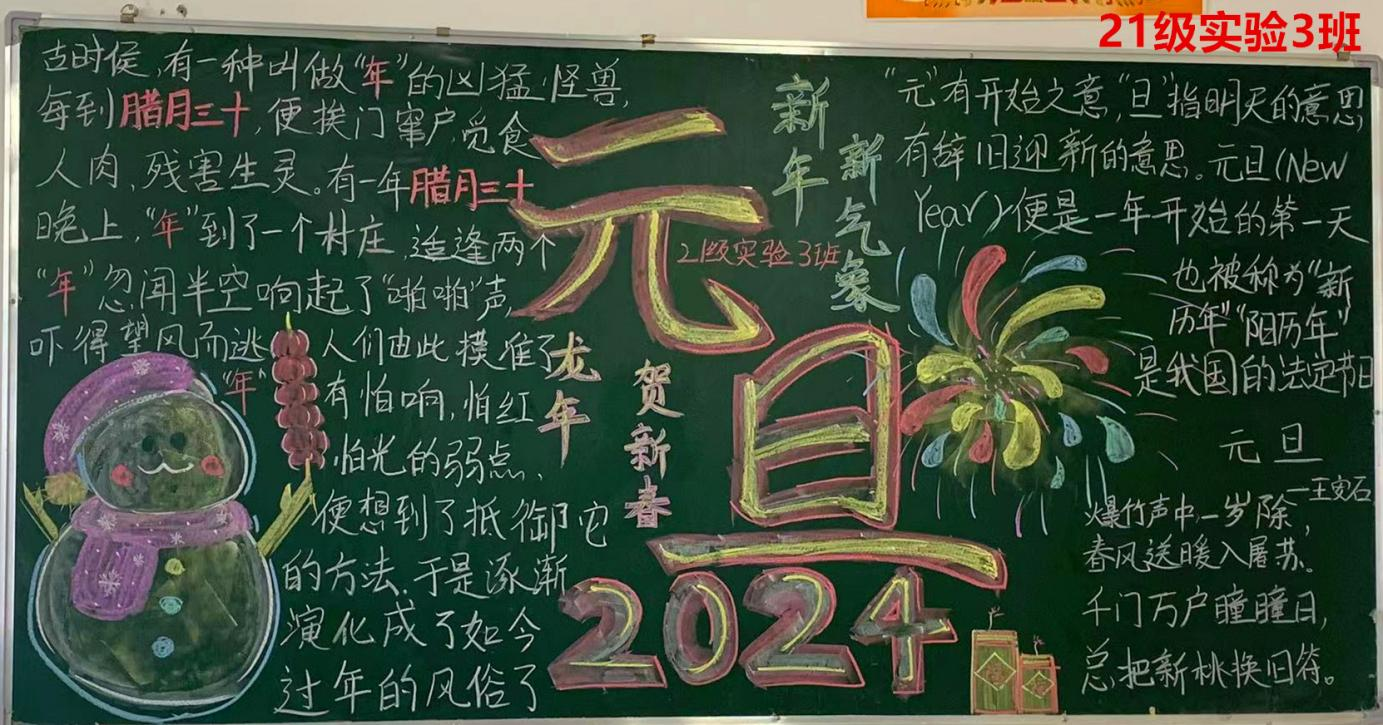 21级实验3班
古时侯,有一种叫做"年"的凶猛怪兽,
每到腊月三十,便挨门窜户,觅食
人肉,残害生灵。有一年腊月三十
晚上,"年"到了一个村庄,适逢两个
"年"忽闻半空响起了"啪啪"声,
吓得望风而逃
"年"
人们由此摸准了
有怕响,怕红
怕光的弱点、
便想到了抵御它
的方法、于是逐渐
演化成了如今
过年的风俗了
元旦
2024
21级实验3班
新年
新气象
龙年
贺新春
"元"有开始之意,"旦"指明天的意思,
有辞旧迎新的意思。元旦(New
Year)便是一年开始的第一天
也被称为"新
历年""阳历年"
是我国的法定节日
元旦
—王安石
爆竹声中一岁除,
春风送暖入屠苏。
千门万户瞳瞳日,
总把新桃换旧符。